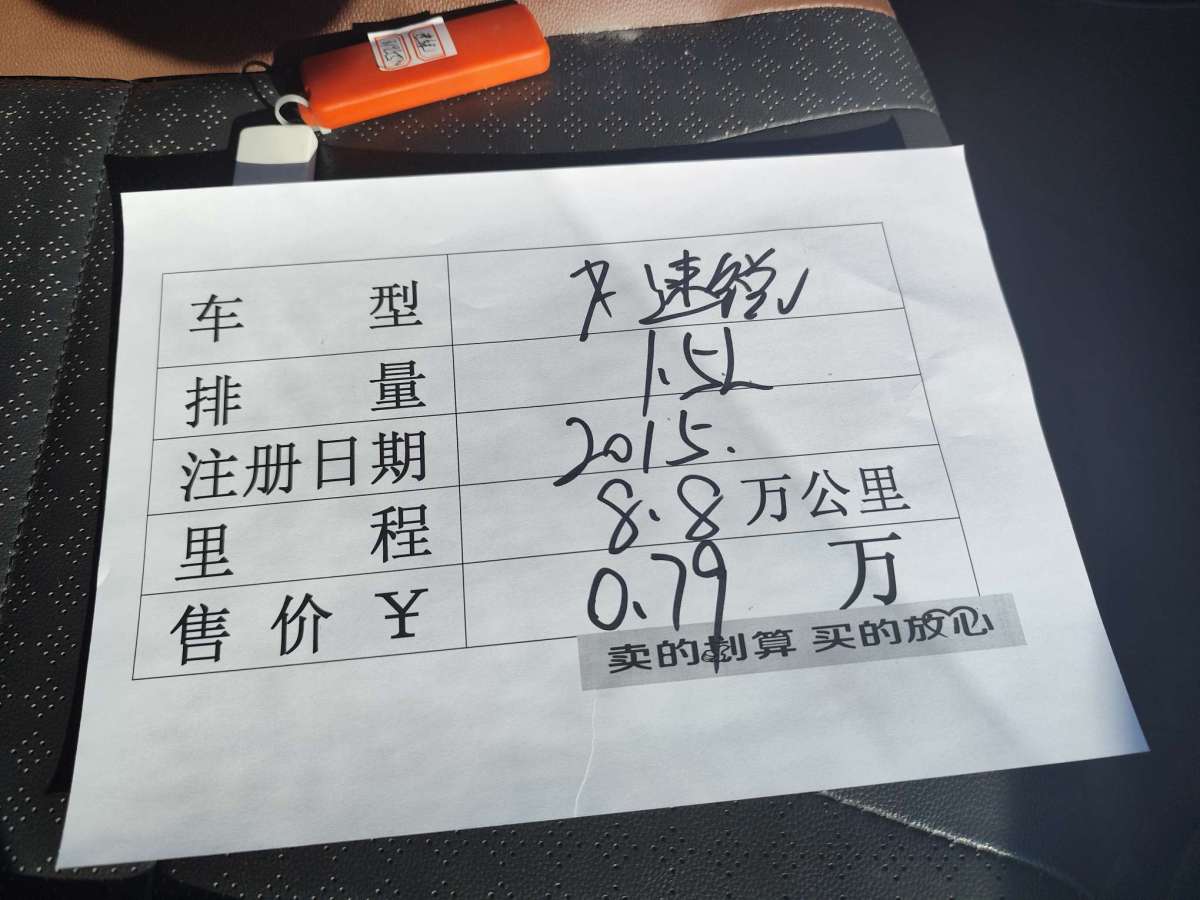 车型 大速锐
排量 1.5L
注册日期 2015.
里程 8.8万公里
售价¥ 0.79万
卖的划算 买的放心